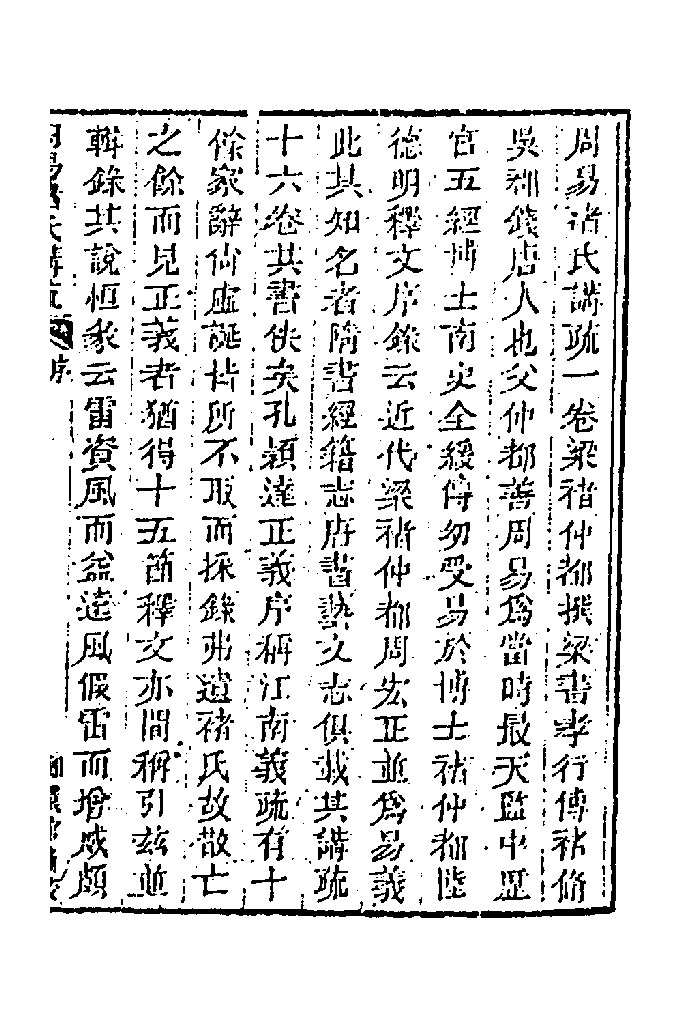 周易褚氏講疏一卷梁褚仲都撰梁書孝行傳褚脩
吳郡錢唐人也父仲都善周易爲當時最天監中歷
官五經博士南史全緩傳幼受易於博士褚仲都陸
德明釋文序錄云近代梁褚仲都周宏正並爲易義
此其知名者隋書經籍志唐書藝文志俱載其講疏
十六卷其書佚矣孔穎達正義序稱江南義疏有十
餘家辭尚虛誕皆所不取而採錄弗遺褚氏故散亡
之餘而見正義者猶得十五節釋文亦間稱引茲並
輯錄其說恒彖云雷資風而益遠風假雷而增威頗
周易褚氏講疏 序